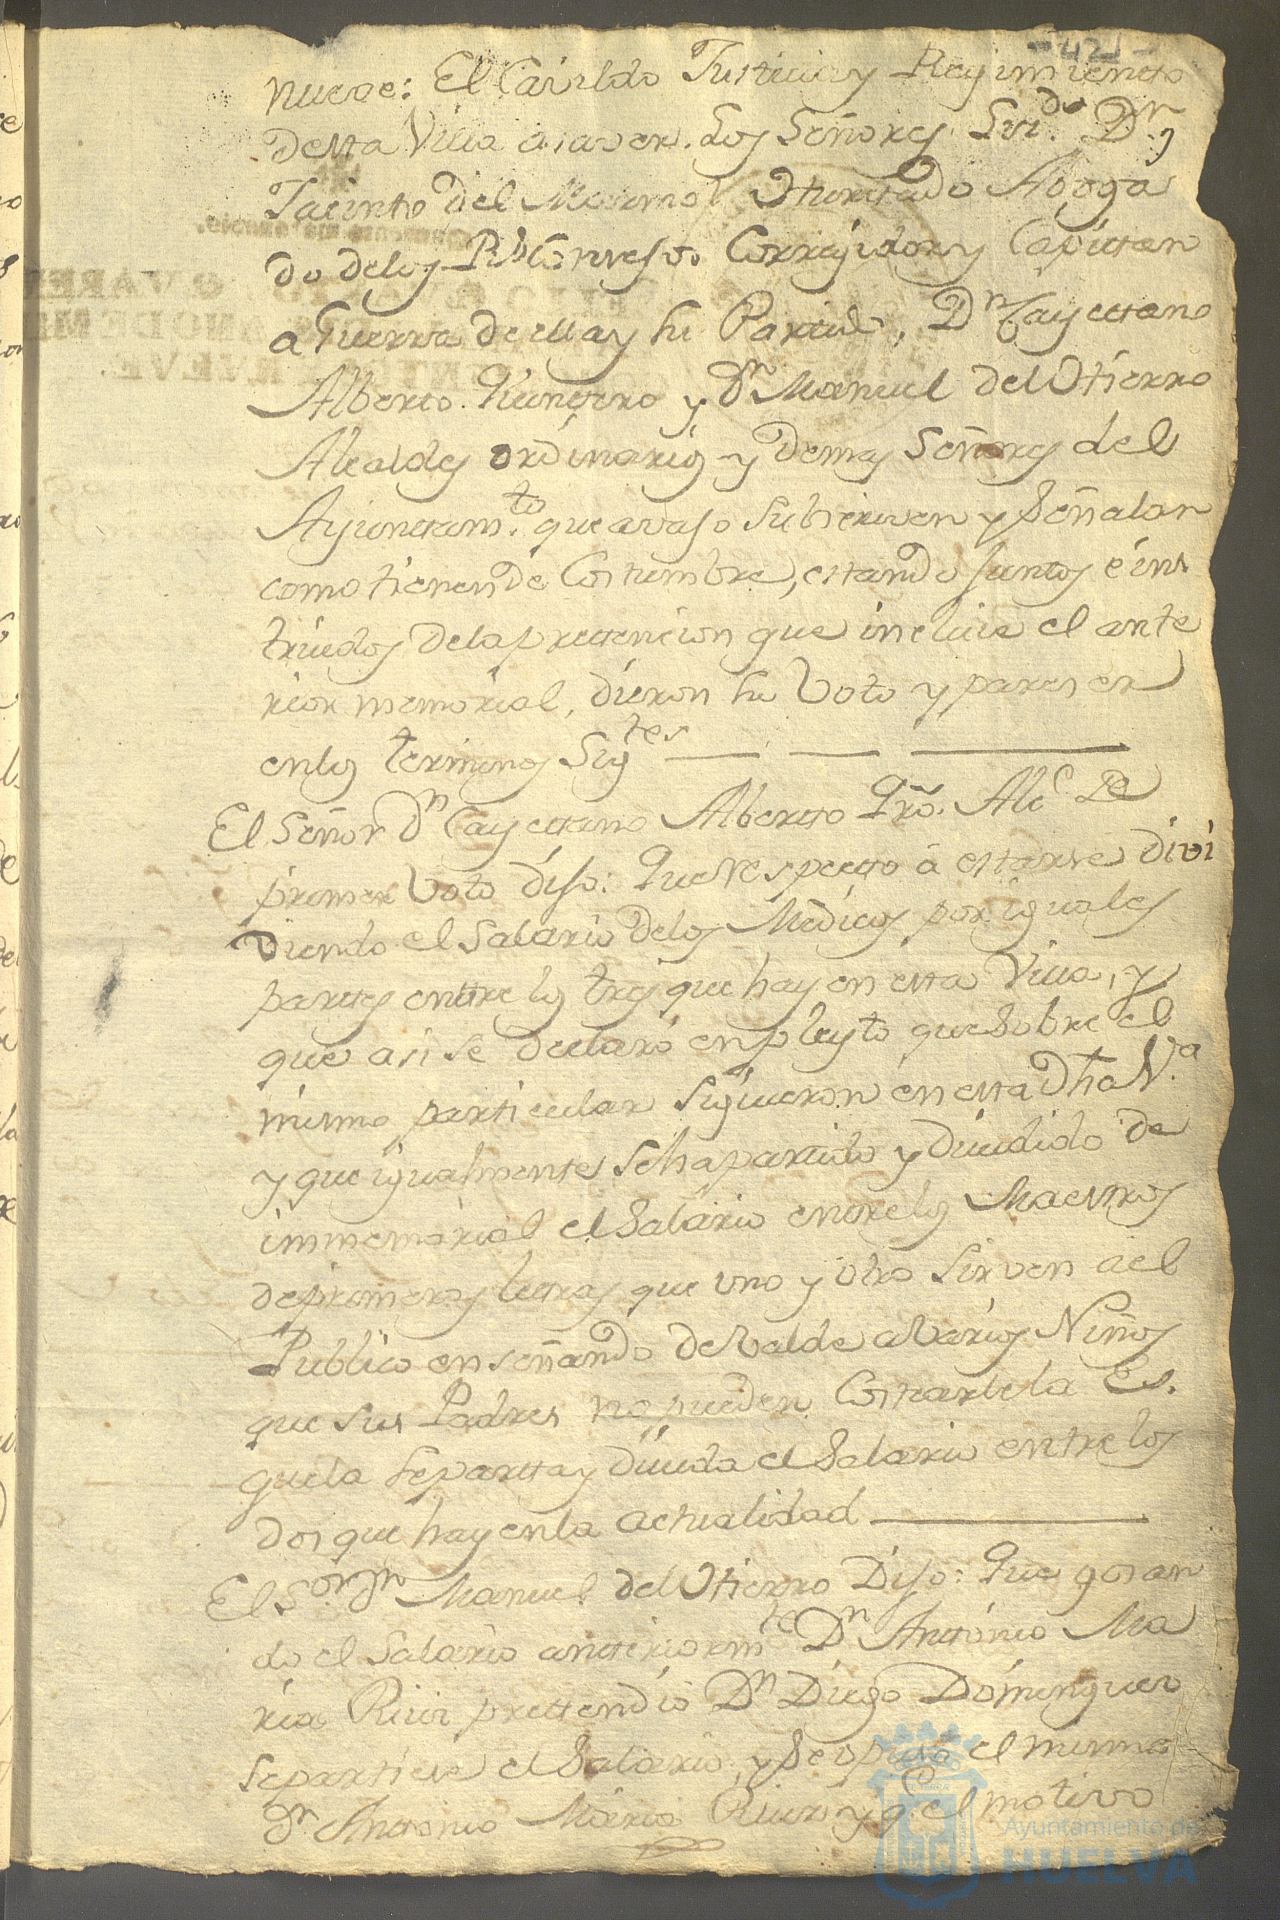 -421-
nueve: El Cavildo Justicia y Regimiento
desta Villa a saver. Los Señores Lizdo. Dn.
Jacinto del Marmol Hurtado Aboga
do de los Rs. Consejos. Corregidor y Capittan
a Guerra de ella y su Partido, Dn. Cayettano
Alberto Quintero y Dn. Manuel del Hierro
Alcaldes ordinarios y demas Señores del
Ayunttamto. que avajo subscriven y señalan
como tienen de Costumbre, estando juntos é ins
truidos de la prettencion que incluie el ante
rior memorial, dieron su Voto y parescer
en los terminos Sigtes
El Señor Dn Cayettano Albertto Qro. Alce. De
primer Voto dijo: Que respectto á estarse divi
diendo el Salario de los Medicos por iguales
parttes enttre los tres que hay en esta Villa, y
que asi se declaró en pleyto que sobre el
mismo particular siguieron en esta Dha Va.
y que igualmente se ha partido y dividido de
inmemorial el Salario entre los Maestros
de primeras letras que uno y otro sirven a el
Publico enseñando de valde a varios Niños
que sus Padres no pueden Costearle la Es.
quela se partta y divida el Salario entre los
dos que hay en la actualidad
El Sor. Dn Manuel del Hierro Dijo: Que gosan
do el Salario antteriormte Dn Anttonio Ma
ria Ruiz prettendió Dn Diego Dominguez
se partiese el Salario, y se opuso el mismo
Dn. Antonio Maria Ruiz y q. el motivo
Ayuntamiento de
HUELVA